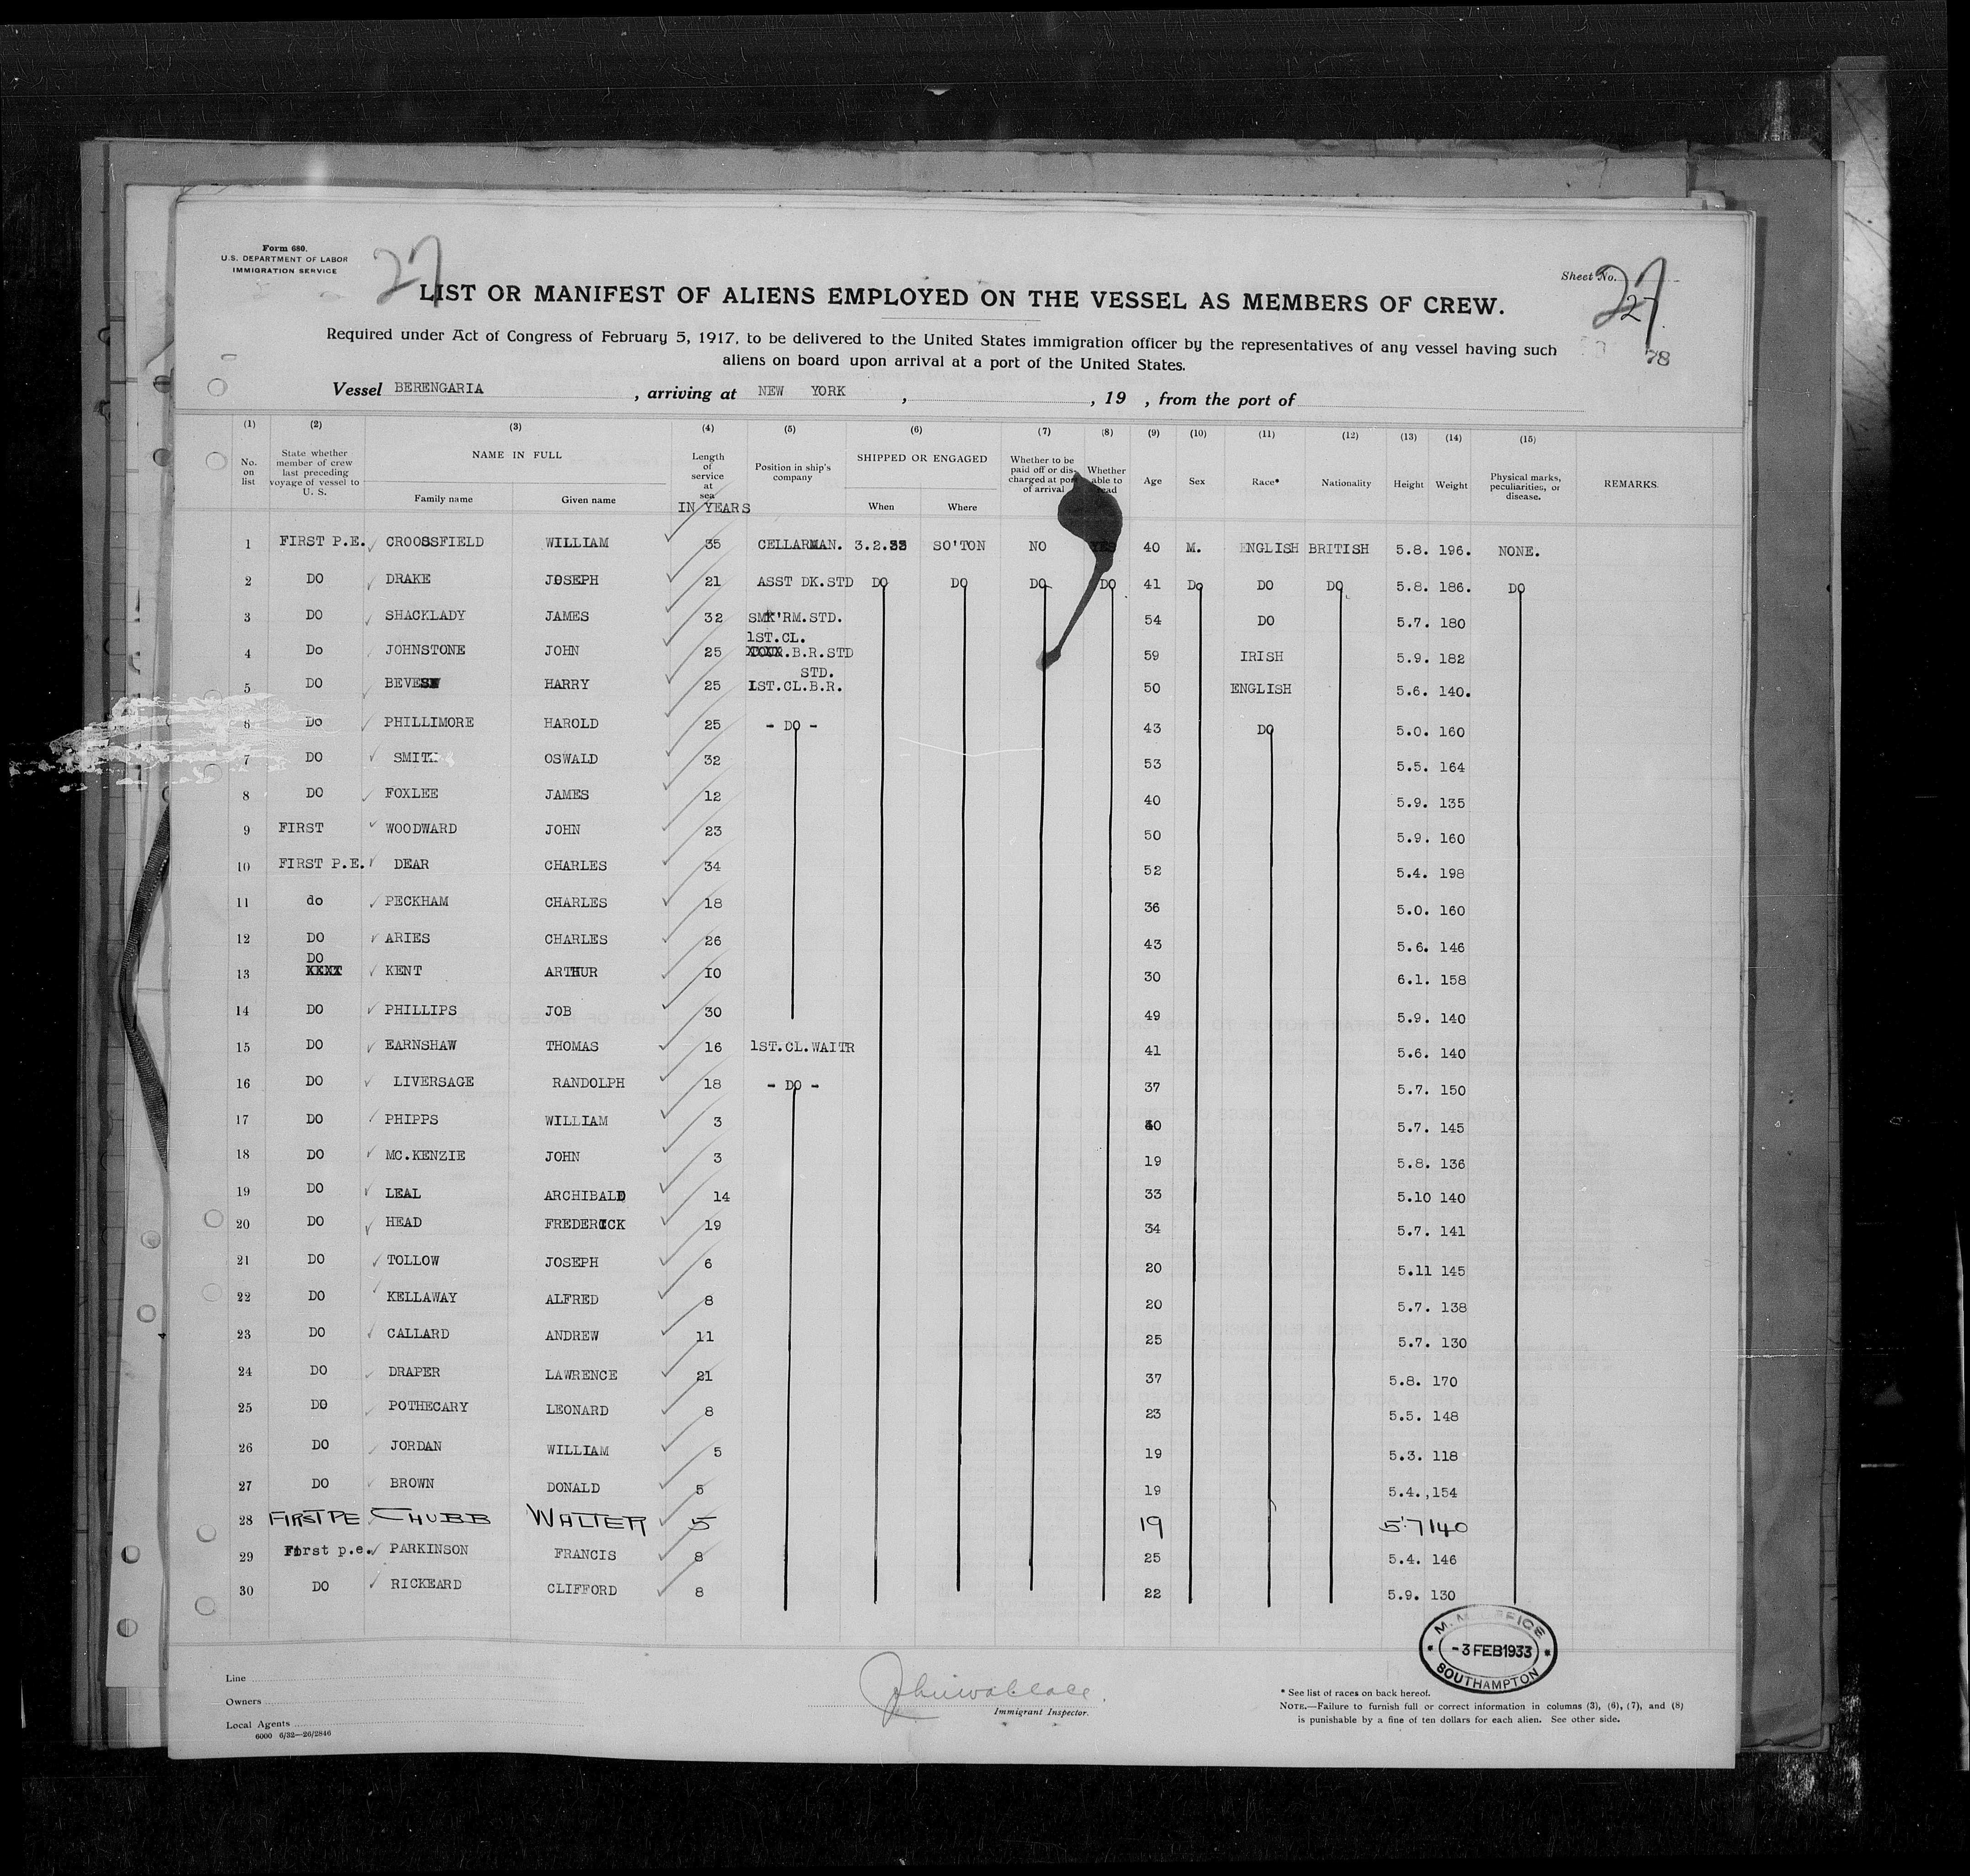 Form 680.
U.S. DEPARTMENT OF LABOR
IMMIGRATION SERVICE
27
Sheet No. 27
27
78
LIST OR MANIFEST OF ALIENS EMPLOYED ON THE VESSEL AS MEMBERS OF CREW.
Required under Act of Congress of February 5, 1917, to be delivered to the United States immigration officer by the representatives of any vessel having such
aliens on board upon arrival at a port of the United States.
Vessel BERENGARIA, arriving at NEW YORK, , 19 , from the port of
(1) (2) (3) (4) (5) (6) (7) (8) (9) (10) (11) (12) (13) (14) (15)
No. on list State whether member of crew last preceding voyage of vessel to U. S. NAME IN FULL Family name Given name Length of service at sea IN YEARS Position in ship's company SHIPPED OR ENGAGED When Where Whether to be paid off or discharged at port of arrival Whether able to read Age Sex Race* Nationality Height Weight Physical marks, peculiarities, or disease. REMARKS.
1 FIRST P.E. CROOSSFIELD WILLIAM 35 CELLARMAN. 3.2.33 SO'TON NO YES 40 M. ENGLISH BRITISH 5.8. 196. NONE.
2 DO DRAKE JOSEPH 21 ASST DK.STD DO DO DO DO 41 Do DO DO 5.8. 186. DO
3 DO SHACKLADY JAMES 32 SMK'RM.STD. 54 DO 5.7. 180
4 Do JOHNSTONE JOHN 25 1ST.CL. .B.R.STD 59 IRISH 5.9. 182
5 DO BEVES HARRY 25 1ST.CL.B.R. STD. 50 ENGLISH 5.6. 140.
6 Do PHILLIMORE HAROLD 25 - DO - 43 DO 5.0. 160
7 DO SMITH OSWALD 32 53 5.5. 164
8 DO FOXLEE JAMES 12 40 5.9. 135
9 FIRST WOODWARD JOHN 23 50 5.9. 160
10 FIRST P.E. DEAR CHARLES 34 52 5.4. 198
11 do PECKHAM CHARLES 18 36 5.0. 160
12 DO ARIES CHARLES 26 43 5.6. 146
13 DO KENT ARTHUR 10 30 6.1. 158
14 DO PHILLIPS JOB 30 49 5.9. 140
15 DO EARNSHAW THOMAS 16 1ST.CL.WAITR 41 5.6. 140
16 DO LIVERSAGE RANDOLPH 18 - DO - 37 5.7. 150
17 DO PHIPPS WILLIAM 3 5.7. 145
18 DO MC.KENZIE JOHN 3 19 5.8. 136
19 DO LEAL ARCHIBALD 14 33 5.10 140
20 DO HEAD FREDERICK 19 34 5.7. 141
21 DO TOLLOW JOSEPH 6 20 5.11 145
22 DO KELLAWAY ALFRED 8 20 5.7. 138
23 DO CALLARD ANDREW 11 25 5.7. 130
24 DO DRAPER LAWRENCE 21 37 5.8. 170
25 DO POTHECARY LEONARD 8 23 5.5. 148
26 DO JORDAN WILLIAM 5 19 5.3. 118
27 DO BROWN DONALD 5 19 5.4. ,154
28 FIRST PE CHUBB WALTER 5 19 5'.7 140
29 First p.e. PARKINSON FRANCIS 8 25 5.4. 146
30 DO RICKEARD CLIFFORD 8 22 5.9. 130
M. M. OFFICE
-3 FEB 1933
SOUTHAMPTON
Line
Owners
Local Agents
6000 6/32—26/2846
John Wallace.
Immigrant Inspector.
* See list of races on back hereof.
NOTE.—Failure to furnish full or correct information in columns (3), (6), (7), and (8)
is punishable by a fine of ten dollars for each alien. See other side.